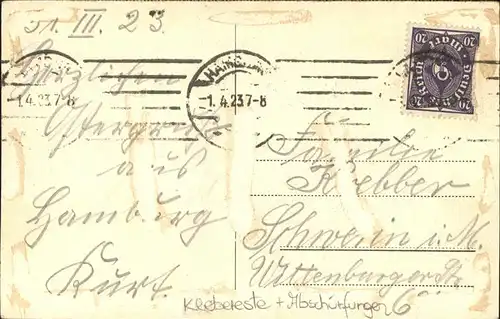 31. III. 23.
HAMBURG
1.4.23.7-8
1.4.23.7-8
Herzlichen
Ostergruß
aus
Hamburg
Kurt.
20 20
Deutsches Reich
20 20
Familie
Kebber
Schwerin i. M.
Wittenburger Str.
6
Klebereste + Abschürfungen